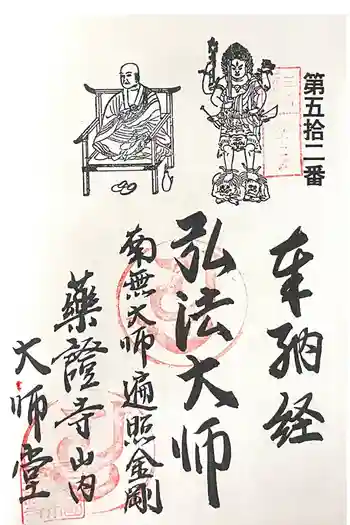 第五拾二番
奉納経
弘法大師
南無大師遍照金剛
藥證寺山内
大師堂